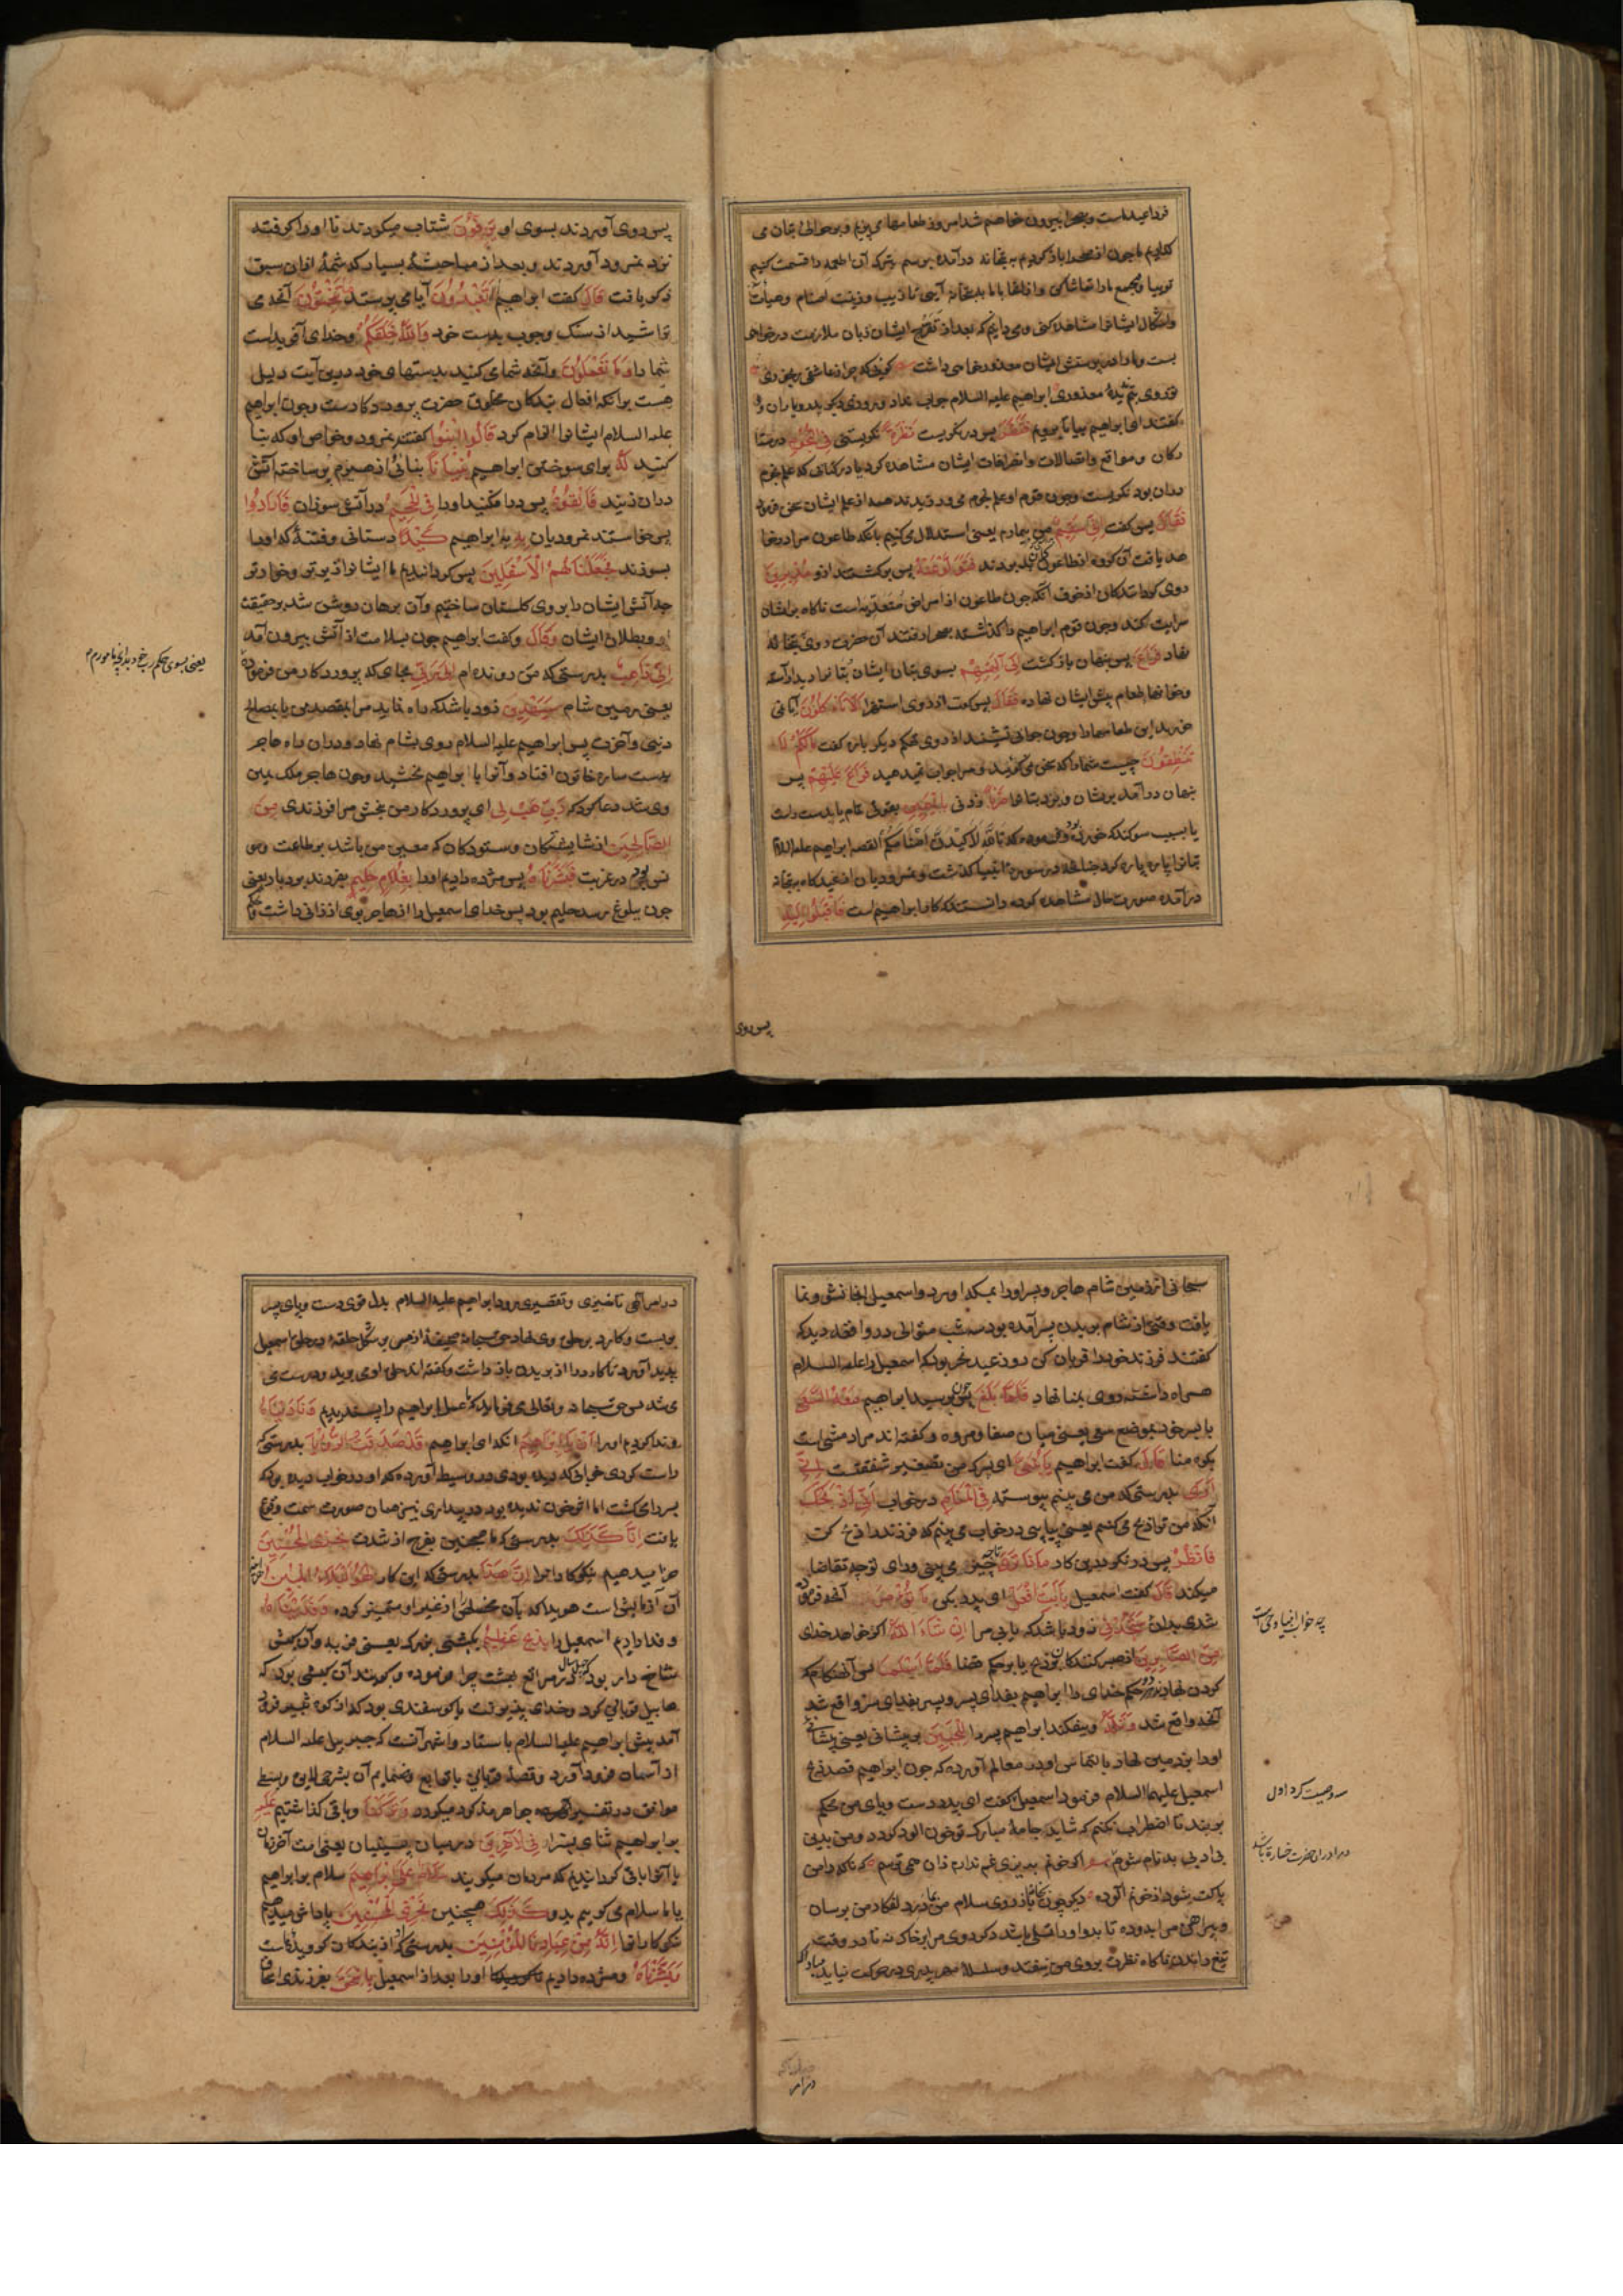 فرداعیداست وبصحرا بیرون خواهیم شد امروز طعامها می پزیم وبرحوالئ بتان می
کذاریم تا چون از صحرا باز کردیم به بتخانه درآمده برسم تبرک آن اطعمه را قسمت کنیم
تو بیا ومجمع ما را تماشا کن واز انجا با ما به بتخانه آیی تا زیب وزینت اصنام وهیأت
واشکال ایشانرا مشاهده کنی ومی دانم که بعد از تفرج ایشان زبان ملامت درخواهی
بست وما را در پرستش ایشان معذور خواهی داشت
کفتند ای ابراهیم بیا تا برویم فنظر پس درنکریست نظرة نکریستنی فی النجوم درستا
رکان ومواقع واتصالات وانصرافات ایشان مشاهده کرد یا در کتابی که علم نجوم
دران بود نکریست وچون قوم او علم نجوم می ورزیدند هم از علم ایشان سخن فرمود
فقال پس کفت انی سقیم من بیمارم یعنی استدلال می کنیم بآنکه طاعون مرا درخوا
هد یافت آن کروه از طاعون بودند فتولوا عنه پس برکشتند ازو مدبرین
روی کردانندکان از خوف آنکه چون طاعون از امراض متعدیه است ناکاه برایشان
سرایت کند وچون قوم ابراهیم را کذاشته بصحرا رفتند آن حضرت روی به بتخانه
نهاد فراغ پس پنهان بازکشت الی آلهتهم بسوی بتان ایشان بتانرا دید آراسته
وخوانها طعام پیش ایشان نهاده فقال پس کفت از روی استهزا الا تاکلون آیا نمی
خورید این طعامها را وچون جوابی نشنید از روی تحکم دیکر باره کفت مالکم لا
تنطقون چیست شما را که سخن نمی کویید ومرا جواب نمیدهید فراغ علیهم پس
پنهان درآمد بریشان وبزد بتانرا ضربا زدنی بالیمین بقوتی تمام یا بدست راست
یا بسبب سوکند که خورده بود وفرموده که تالله لاکیدن اصنامکم القصه ابراهیم علیه السلام
بتانرا پاره پاره کرد چنانچه درسورهٔ انبیا کذشت ونمرودیان از عیدکاه به بتخانه
درآمده صورت حال مشاهده کرده دانستند که کار ابراهیم است فاقبلوا الیه
پس روی
پس روی آوردند بسوی او یزفون شتاب میکردند تا اورا کرفتند
نزد نمرود آوردند وبعد از مباحثهٔ بسیار که شمهٔ ازان سبق
ذکر یافت قال کفت ابراهیم اتعبدون آیا می پرستید ما تنحتون آنچه می
تراشید از سنک وچوب بدست خود والله خلقکم وخدای آفریدست
شما را وما تعملون وآنچه شما می کنید بدستهای خود درین آیت دلیل
هست برانکه افعال بندکان مخلوق حضرت پروردکارست وچون ابراهیم
علیه السلام ایشانرا الزام کرد قالوا ابنوا کفتند نمرود وخواص او که بنا
کنید له برای سوختن ابراهیم بنیانا بنائی از هیزم پر ساخته آتش
دران زنید فالقوه پس درافکنید اورا فی الجحیم درآتش سوزان فارادوا
پس خواستند نمرودیان به بابراهیم کیدا دستانی وفتنهٔ که اورا
بسوزند فجعلناهم الاسفلین پس کردانیدیم ما ایشانرا زیرتر وخوارتر
چه آتش ایشان را بر وی کلستان ساختیم وآن برهان روشن شد بر حقیقت
او وبطلان ایشان وقال وکفت ابراهیم چون بسلامت از آتش بیرون آمد
انی ذاهب بدرستی که من رونده ام الی ربی بجای که پروردکار من فرموده
یعنی زمین شام سیهدین زود باشد که راه نماید مرا بمقصد من یا بمصالح
دنیی وآخرت پس ابراهیم علیه السلام روی بشام نهاد ودران راه هاجر
بدست ساره خاتون افتاد وآنرا با ابراهیم بخشید وچون هاجر ملک یمین
وی شد دعا کرد که رب هب لی ای پروردکار من ببخش مرا فرزندی من
الصالحین از شایستکان وستودکان که معین من باشد بر طاعت ومو
نس بود در غربت فبشرناه پس مژده دادیم اورا بغلام حلیم بفرزند بردبار یعنی
چون ببلوغ رسد حلیم بود پس خدای اسمعیل را از هاجر بوی ارزانی داشت
یعنی بسوی حکم رب خود بدانچه مامورم
سبحانی از زمین شام هاجر وپسر اورا بمکه آورد واسمعیل انجا نشو ونما
یافت وقتی از شام بدیدن پسر آمده بود سه شب متوالی در واقعه دید که
کفتند فرزند خود را قربان کن روز عید نحر بود که اسمعیل را علیه السلام
همراه داشته روی بمنا نهاد فلما بلغ پس چون برسید ابراهیم معه السعی
با پسر خود بموضع سعی یعنی میان صفا ومروه وکفته اند مراد مشی است
بکوه منا قال کفت ابراهیم یا بنی ای پسرک من تصغیر شفقت است انی
اری بدرستی که من می بینم پیوسته فی المنام درخواب انی اذبحک
آنکه من ترا ذبح می کنم یعنی پیاپی درخواب می بینم که فرزند را ذبح کن
فانظر پس درنکر درین کار ماذا تری تا چه چیز می بینی ورای تو چه تقاضا
میکند قال کفت اسمعیل یا ابت افعل ای پدر بکن ما تؤمر آنچه فرموده
شدی بدان ستجدنی زود باشد که یابی مرا ان شاء الله اکر خواهد خدای
من الصابرین از صبرکنندکان بر ذبح یا بر حکم قضا فلما اسلما پس آن هنکام که
کردن نهادند هردو حکم خدای را ابراهیم بفدای پسر وپسر بفدای سر واقع شد
آنچه واقع شد وتله وبیفکند ابراهیم پسر را للجبین بر پیشانی یعنی پیشانی
اورا بر زمین نهاد بالتماس او در معالم آورده که چون ابراهیم قصد ذبح
اسمعیل علیهما السلام فرمود اسمعیل کفت ای پدر دست وپای من محکم
بربند تا اضطراب نکنم که شاید جامهٔ مبارک تو خون الود کردد ومن بدین
بی ادبی بدنام شوم
چه خواب انبیا وحی است
سه وصیت کرد اول
در امر
در امر آلهی تاخیری وتقصیری نرود ابراهیم علیه السلام بدل قوی دست وپای پسر
ببست وکارد بر حلق وی نهاد حق سبحانه صحیفهٔ از مس بر شکل حلقه بر حلق اسمعیل
پدید آورد تا کارد را از بریدن باز داشت وکفته اند حلق او می برید ودرست می
شد پس حق سبحانه وتعالی می فرماید که ما عمل ابراهیم را پسندیدیم ونادیناه
وندا کردیم اورا ان یا ابراهیم انکه ای ابراهیم قد صدقت الرؤیا بدرستی که
راست کردی خوابی که دیده بودی در وسیط آورده که او درخواب دیده بود که
پسر را می کشت اما اثر خون ندیده بود در بیداری نیز همان صورت سمت وقوع
یافت انا کذلک بدرستی که ما همچنین بفرج از شدت نجزی المحسنین
جزا میدهیم نیکوکاران را ان هذا بدرستی که این کار لهو البلاء المبین
آن آزمایش است هویدا که بآن مخلص از غیر او متمیز کردد وفدیناه
وفدا دادیم اسمعیل را بذبح عظیم بکبشی بزرک یعنی فربه وآن کبش
شاخ دار بود چهل سال در مراتع بهشت چرا فرموده وکویند آن کبشی بود که
هابیل قربانی کرد وخدای پذیرفت یا کوسفندی بود که از کوه ثبیر فرود
آمد پیش ابراهیم علیه السلام بایستاد واشهر آنست که جبرییل علیه السلام
از آسمان فرود آورد وقصهٔ قربانی با توابع وضمایم آن بشرحی لایق وبسطی
موافق در تفسیر جواهر مذکور میکردد وترکنا وباقی کذاشتیم علیه
بر ابراهیم ثنای نیکو فی الاخرین درمیان پسینیان یعنی امت آخرزمان
یا آنرا باقی کردانیدیم که مردمان میکویند سلام علی ابراهیم سلام بر ابراهیم
یا ما سلام می کوییم بدو کذلک همچنین نجزی المحسنین پاداش میدهیم
نیکوکارانرا انه من عبادنا المؤمنین بدرستی که او از بندکان کرویدهٔ ماست
وبشرناه ومژده دادیم اورا بعد از اسمعیل باسحق بفرزندی اسحاق